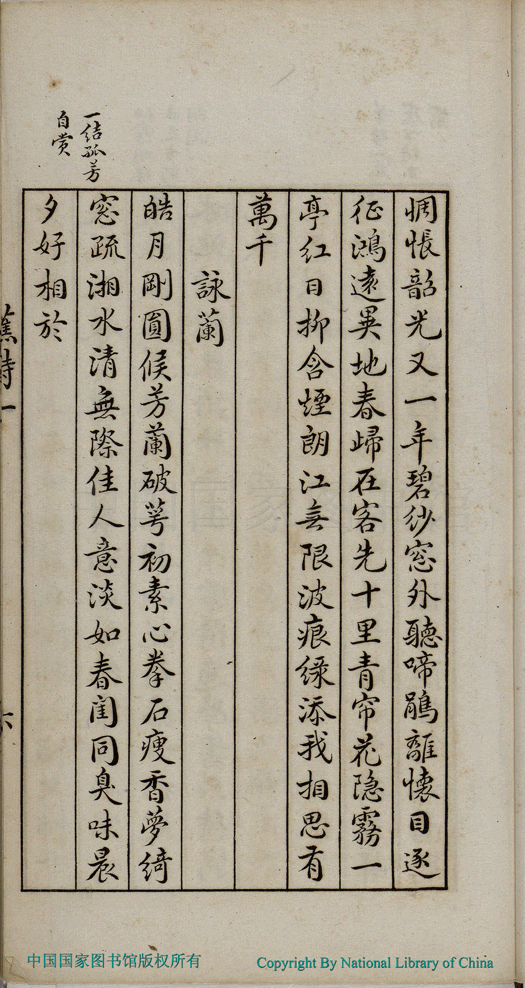 惆悵韶光又一年碧紗窓外聽啼鵑離懷目逐
征鴻遠異地春歸在客先十里青帘花隐霧一
亭红日柳含煙朗江無限波痕緑添我相思有
萬千
詠蘭
皓月剛圓候芳蘭破萼初素心拳石瘦香夢綺
窓疏湘水清無際佳人意淡如春閨同臭味晨
夕好相於
一結孤芳
自賞
蕉詩一
六
中国国家图书馆版权所有
Copyright By National Library of China